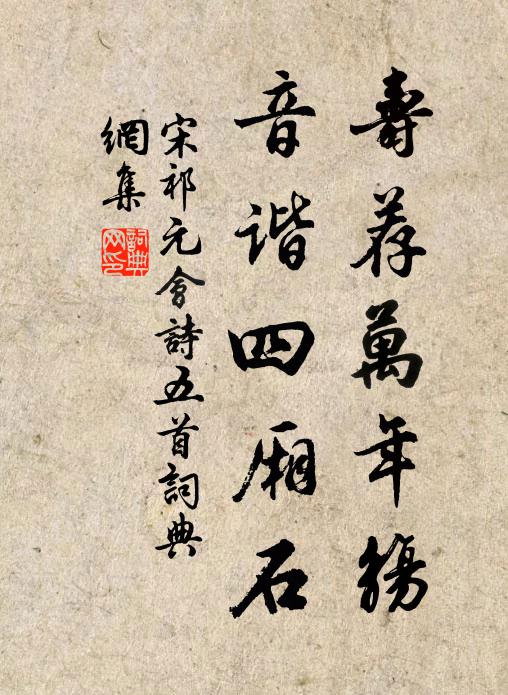 壽荐萬年觴
音諧四廂石
宋祁元會詩五首詞典
網集
詞典
网印